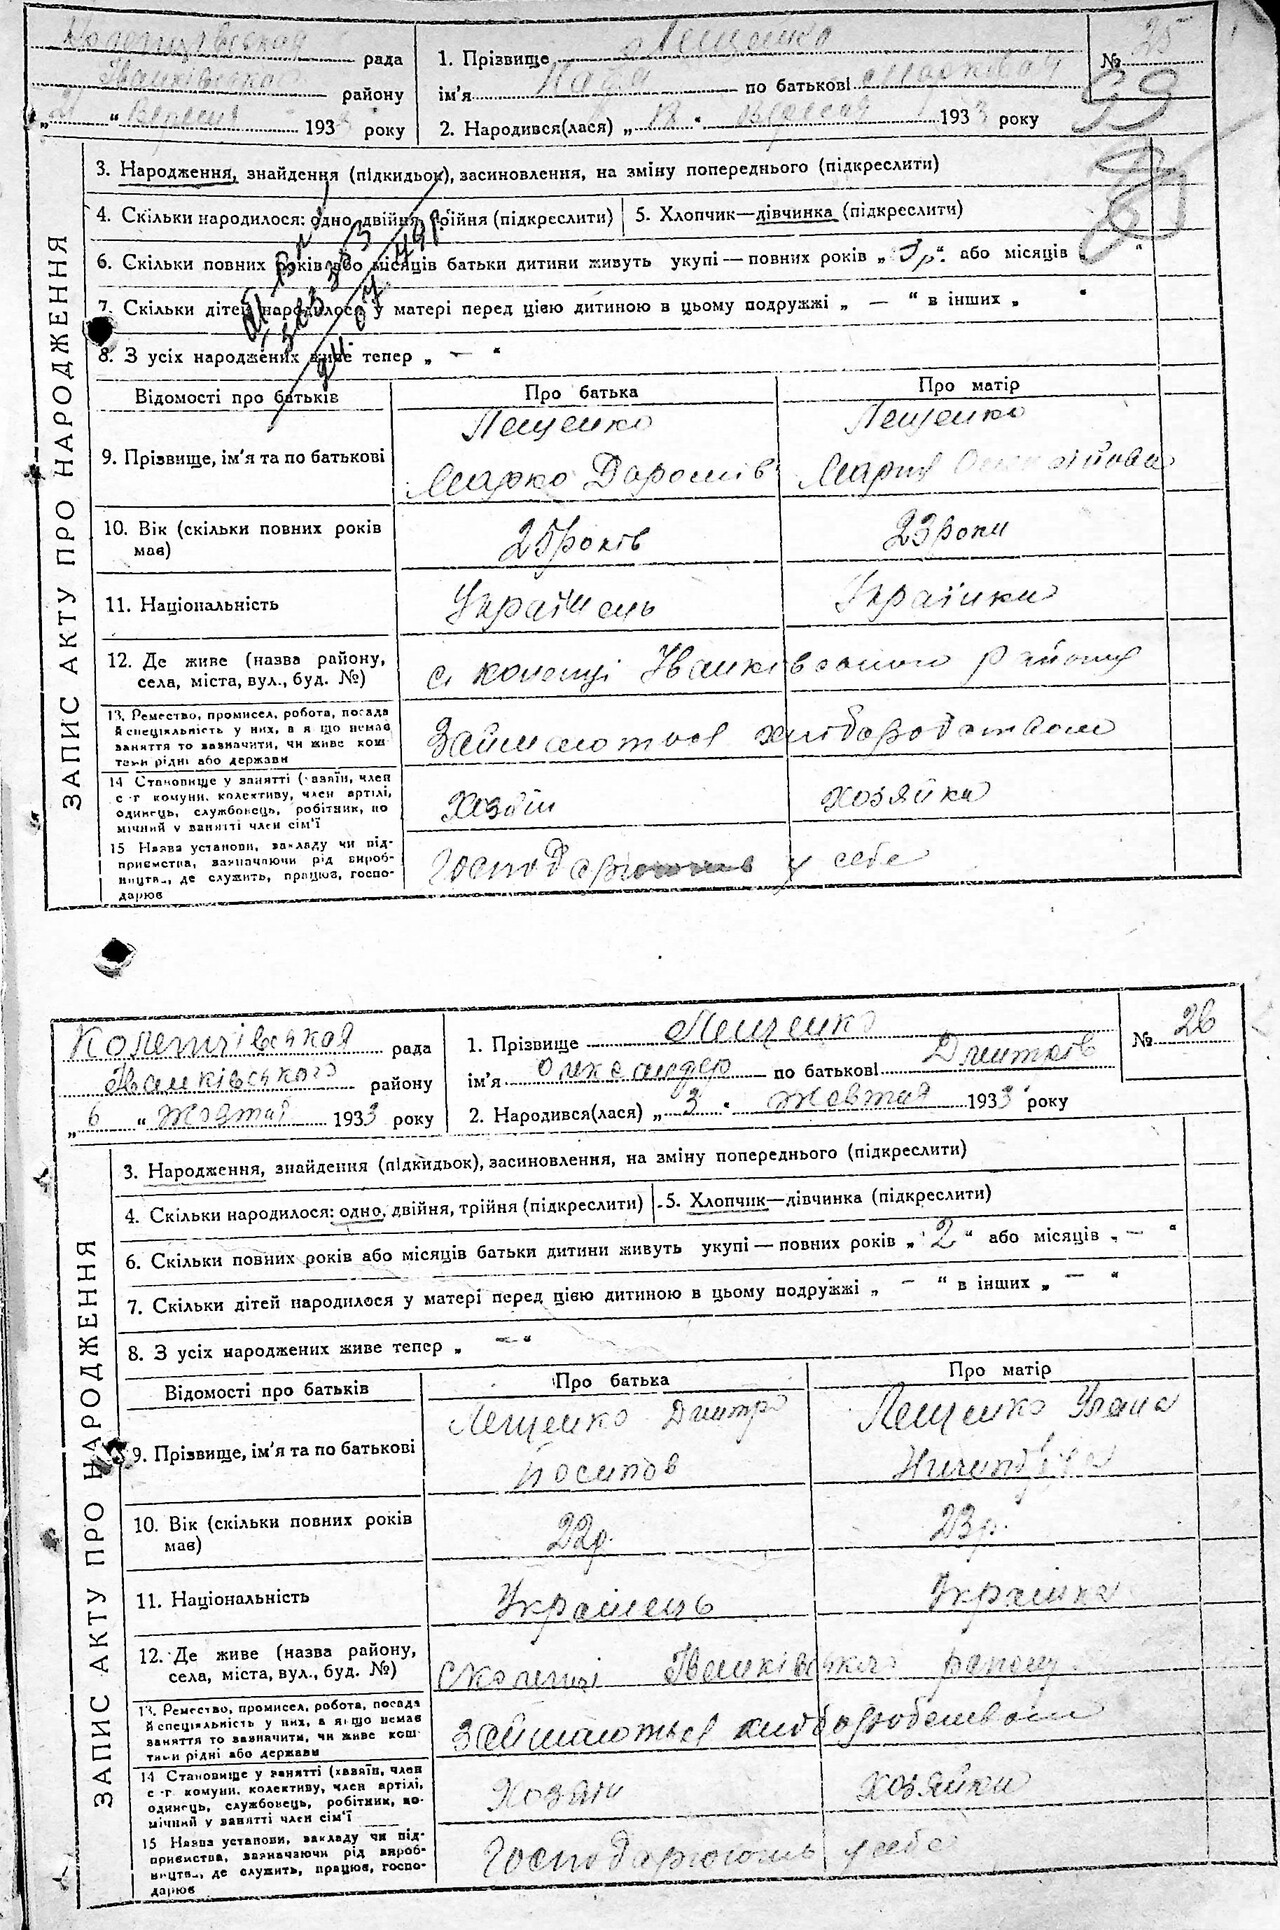 рада
Іванківського району
„21 “ Вересня 1933 року
1. Прізвище Лещенко
ім’я по батькові Марківна
2. Народився(лася) „ 18 “ Вересня 1933 року
№ 25
99
ЗАПИС АКТУ ПРО НАРОДЖЕННЯ
3. Народження, знайдення (підкидьок), засиновлення, на зміну попереднього (підкреслити)
4. Скільки народилося: одно, двійня, трійня (підкреслити)
5. Хлопчик—дівчинка (підкреслити)
6. Скільки повних років або місяців батьки дитини живуть укупі — повних років „ 3р “ або місяців „ “
7. Скільки дітей народилося у матері перед цією дитиною в цьому подружжі „ — “ в інших „ “
8. З усіх народжених живе тепер „ — “
Відомості про батьків
Про батька
Про матір
9. Прізвище, ім’я та по батькові
Лещенко
Марко
Лещенко
Мария
10. Вік (скільки повних років
має)
25 років
23 роки
11. Національність
Українець
Українка
12. Де живе (назва району,
села, міста, вул., буд. №)
с. Коленці Іванківського району
13. Ремество, промисел, робота, посада
й спеціяльність у них, а якщо немає
заняття то зазначити, чи живе кош-
тами рідні або держави
Займаються хліборобством
14 Становище у занятті (хазяїн, член
с.-г комуни, колективу, член артілі,
одинець, службовець, робітник, по
мічний у занятті член сім’ї
Хозяїн
хозяйка
15 Назва установи, закладу чи під-
приємства, зазначаючи рід вироб-
ництва, де служить, працює, госпо-
дарює
Господарюють у себе
рада
Іванківського району
„ 6 “ Жовтня 1933 року
1. Прізвище Лещенко
ім’я Олександер по батькові Дмитрів
2. Народився(лася) „ 3 “ Жовтня 1933 року
№ 26
ЗАПИС АКТУ ПРО НАРОДЖЕННЯ
3. Народження, знайдення (підкидьок), засиновлення, на зміну попереднього (підкреслити)
4. Скільки народилося: одно, двійня, трійня (підкреслити)
5. Хлопчик—дівчинка (підкреслити)
6. Скільки повних років або місяців батьки дитини живуть укупі — повних років „ 2 “ або місяців „ — “
7. Скільки дітей народилося у матері перед цією дитиною в цьому подружжі „ — “ в інших „ — “
8. З усіх народжених живе тепер „ — “
Відомості про батьків
Про батька
Про матір
9. Прізвище, ім’я та по батькові
Лещенко Дмитро
Йосипов
Лещенко Уляна
10. Вік (скільки повних років
має)
22р.
23р.
11. Національність
Українець
Українка
12. Де живе (назва району,
села, міста, вул., буд. №)
с Коленці Іванківського району
13. Ремество, промисел, робота, посада
й спеціяльність у них, а якщо немає
заняття то зазначити, чи живе кош-
тами рідні або держави
Займаються хліборобством
14 Становище у занятті (хазяїн, член
с.-г комуни, колективу, член артілі,
одинець, службовець, робітник, по-
мічний у занятті член сім’ї
Хозяїн
хозяйка
15 Назва установи, закладу чи під-
приємства, зазначаючи рід вироб-
ництва, де служить, працює, госпо-
дарює
Господарюють у себе